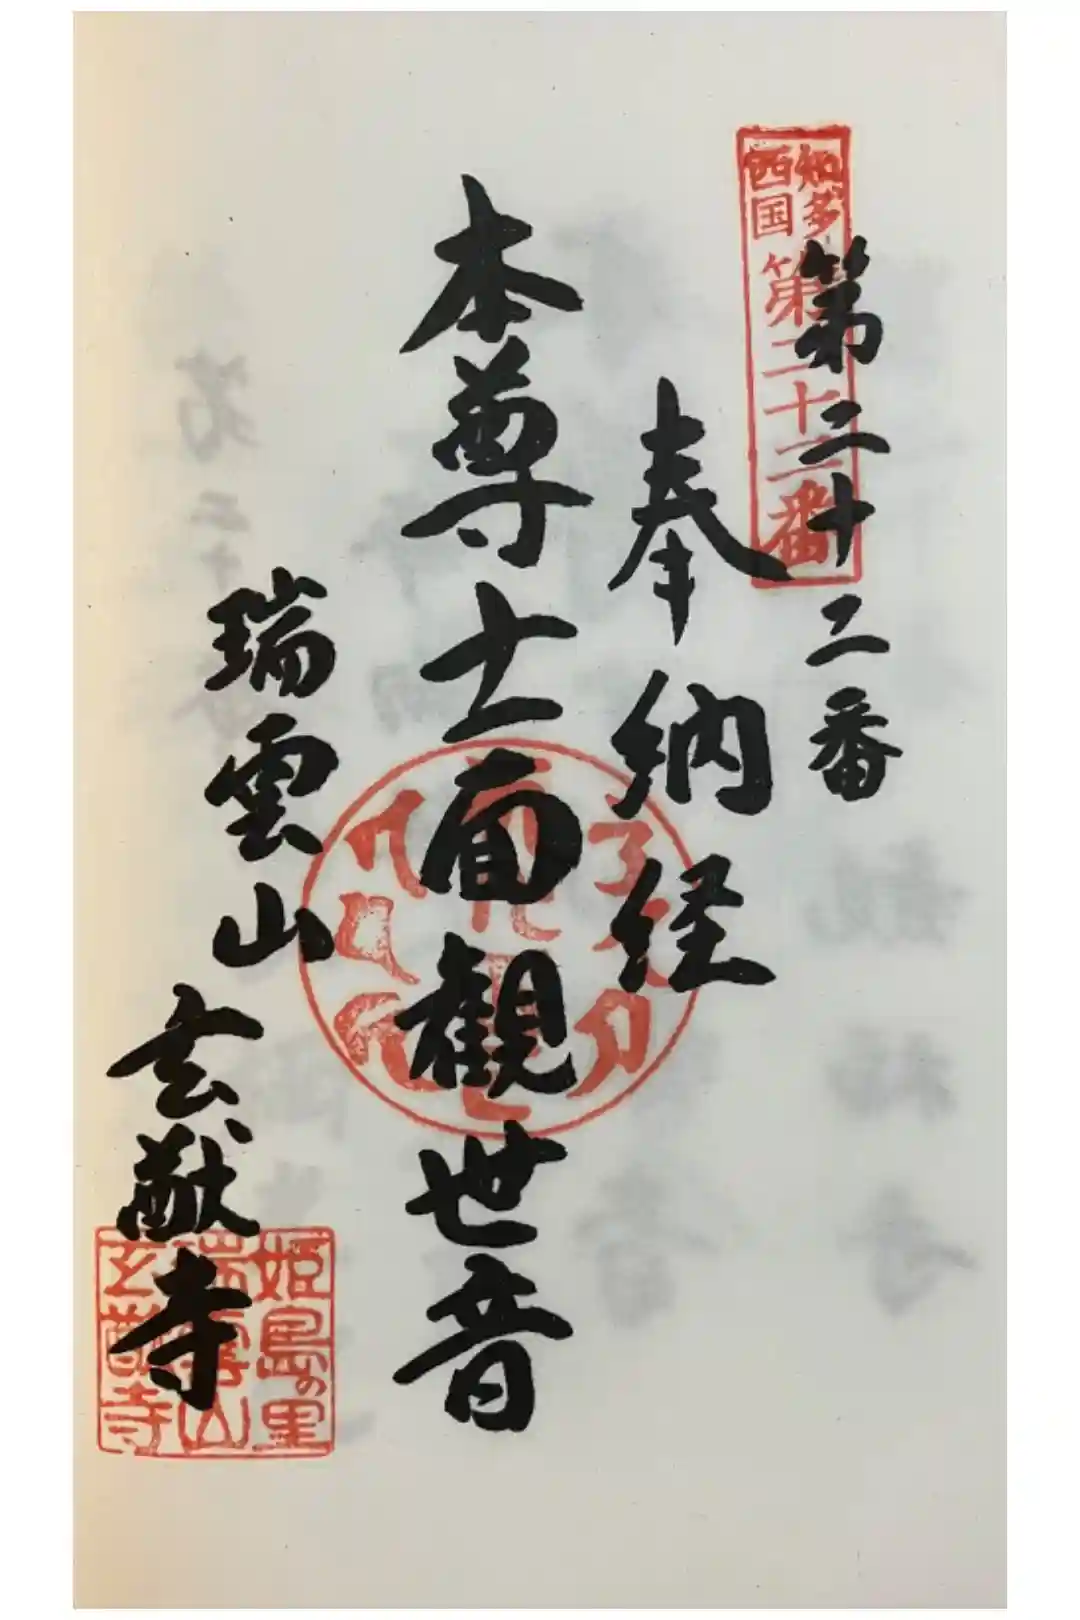 知多
西国
第二十二番
第二十二番
奉納経
本尊十一面観世音
瑞雲山
玄猷寺
姫島の里
瑞雲山
玄猷寺